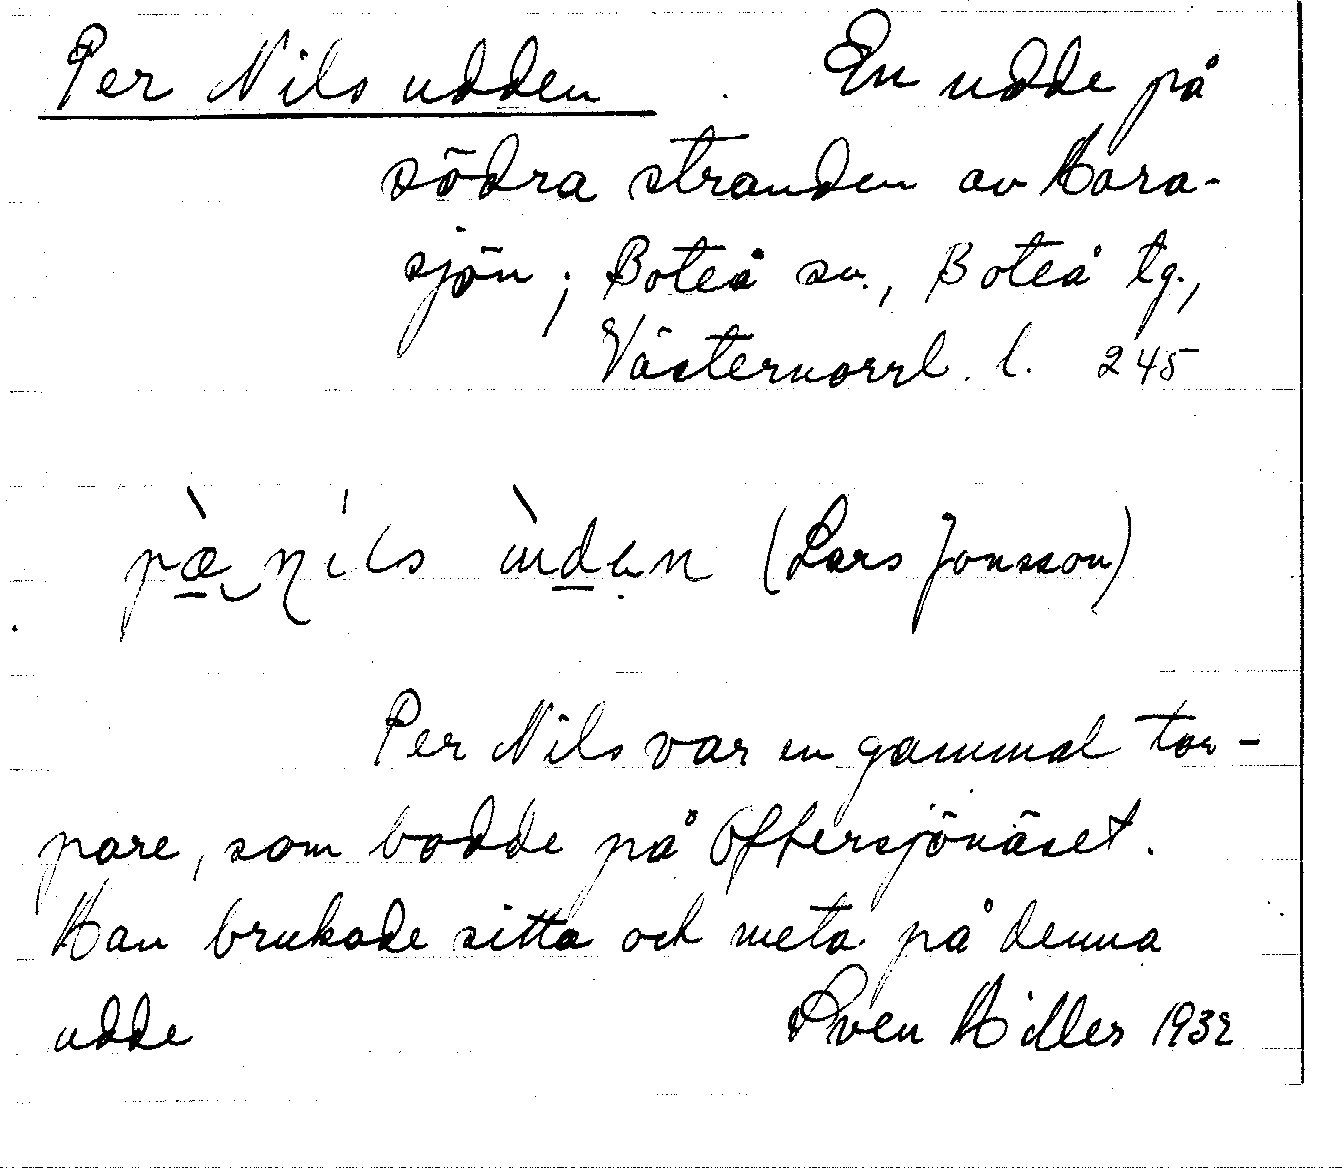 Per Nils udden . En udde på
södra stranden av Hara-
sjön; Boteå sn., Boteå tg.,
Västernorrl. l. 245
nils (Lars Jonsson)
Per Nils var en gammal tor-
pare, som bodde på Oftersjönäset.
Han brukade sitta och meta på denna
udde Sven Hiller 1932